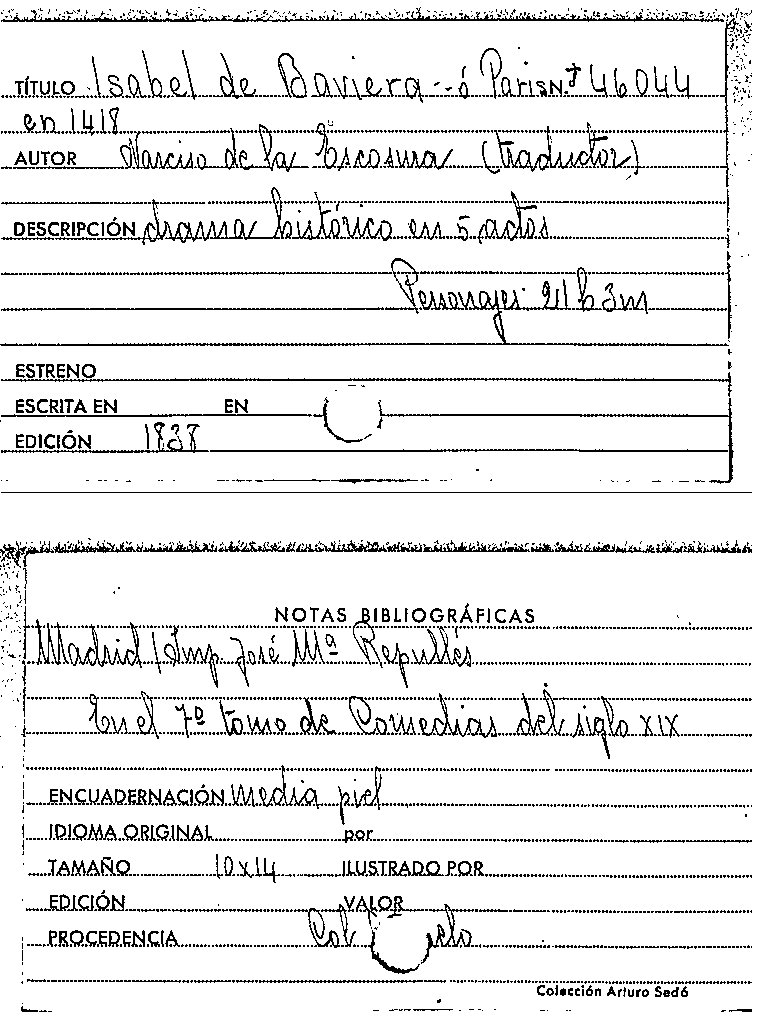 TÍTULO Isabel de Baviera - ó Paris N.º 46044
en 1418
AUTOR Narciso de la Escosura (traductor)
DESCRIPCIÓN drama histórico en 5 actos
Personajes 21 h 3m
ESTRENO
ESCRITA EN EN
EDICIÓN 1838
NOTAS BIBLIOGRÁFICAS
Madrid / Imp José Mª Repullés
En el 7º tomo de Comedias del siglo XIX
ENCUADERNACIÓN media piel
IDIOMA ORIGINAL por
TAMAÑO 10x14 ILUSTRADO POR
EDICIÓN VALOR
PROCEDENCIA Col
Colección Arturo Sedó